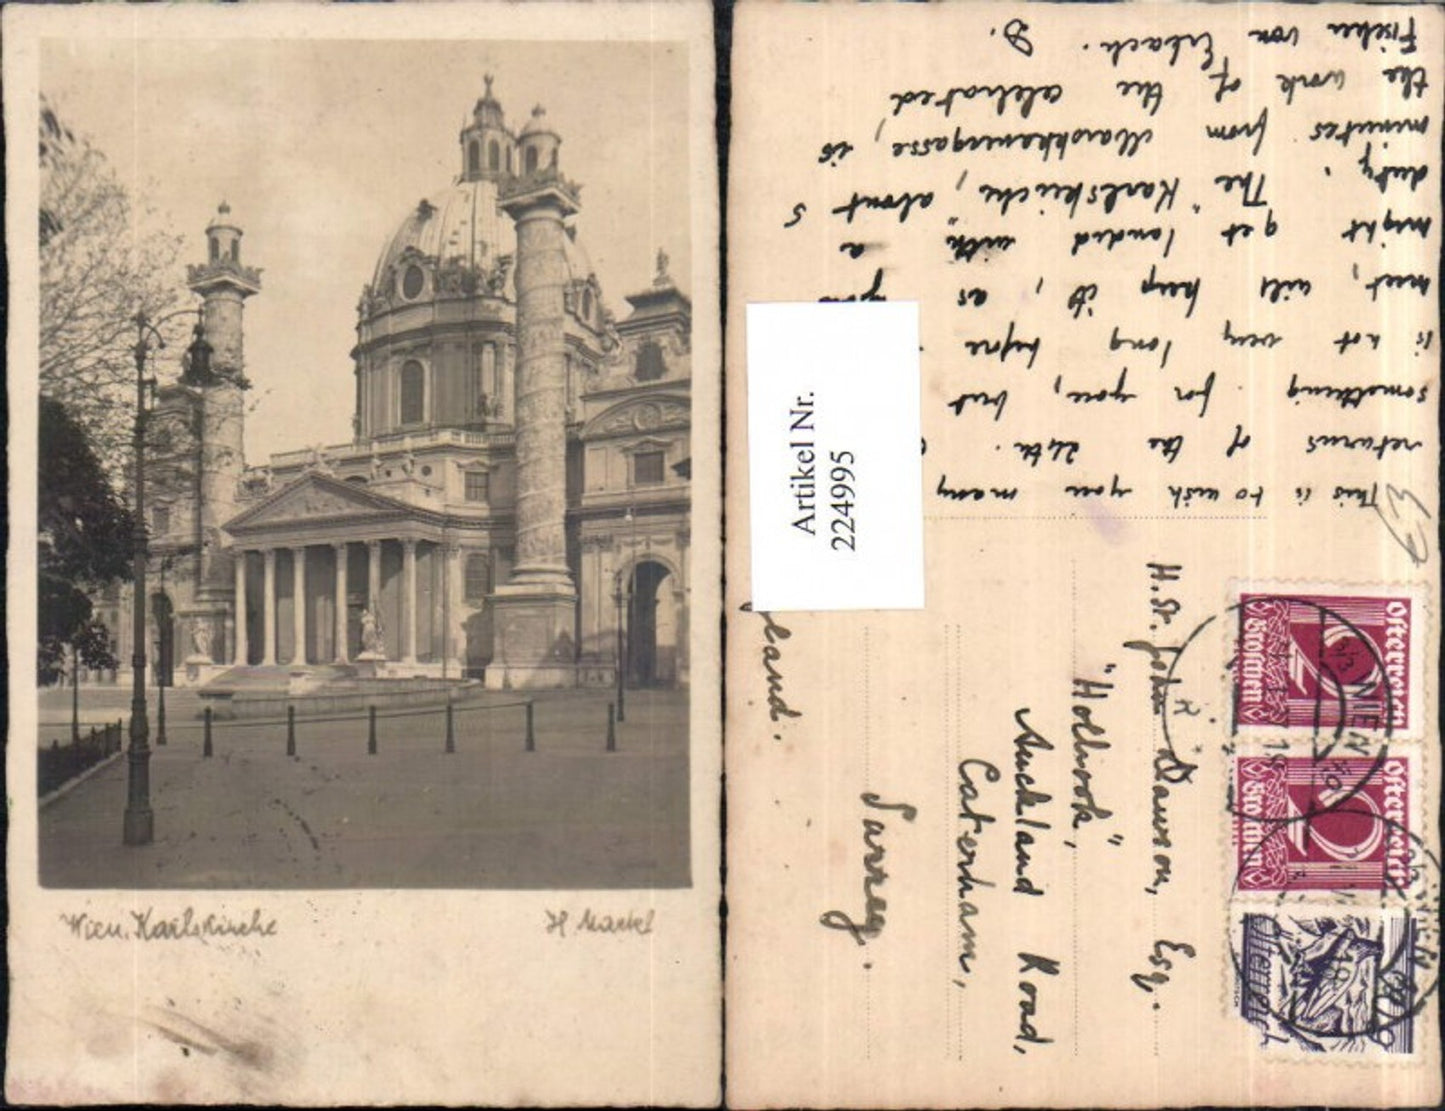 Wien, Karlskirche
H. Markel
Artikel Nr.
2249995
This is to wish you many
returns of the 24th.
something for you, but
is not very long before
meet, will keep it, as you
might get landed with a
duty. The "Karlskirche", about 5
minutes from Marokkanergasse, is
the work of the celebrated
Fischer von Erlach. D.
H. St. John Dawson, Esq.
"Holbrook",
Auckland Road,
Caterham,
Surrey.
gland.
Österreich
10
Groschen
Österreich
10
Groschen
Österreich
WIEN
WIEN